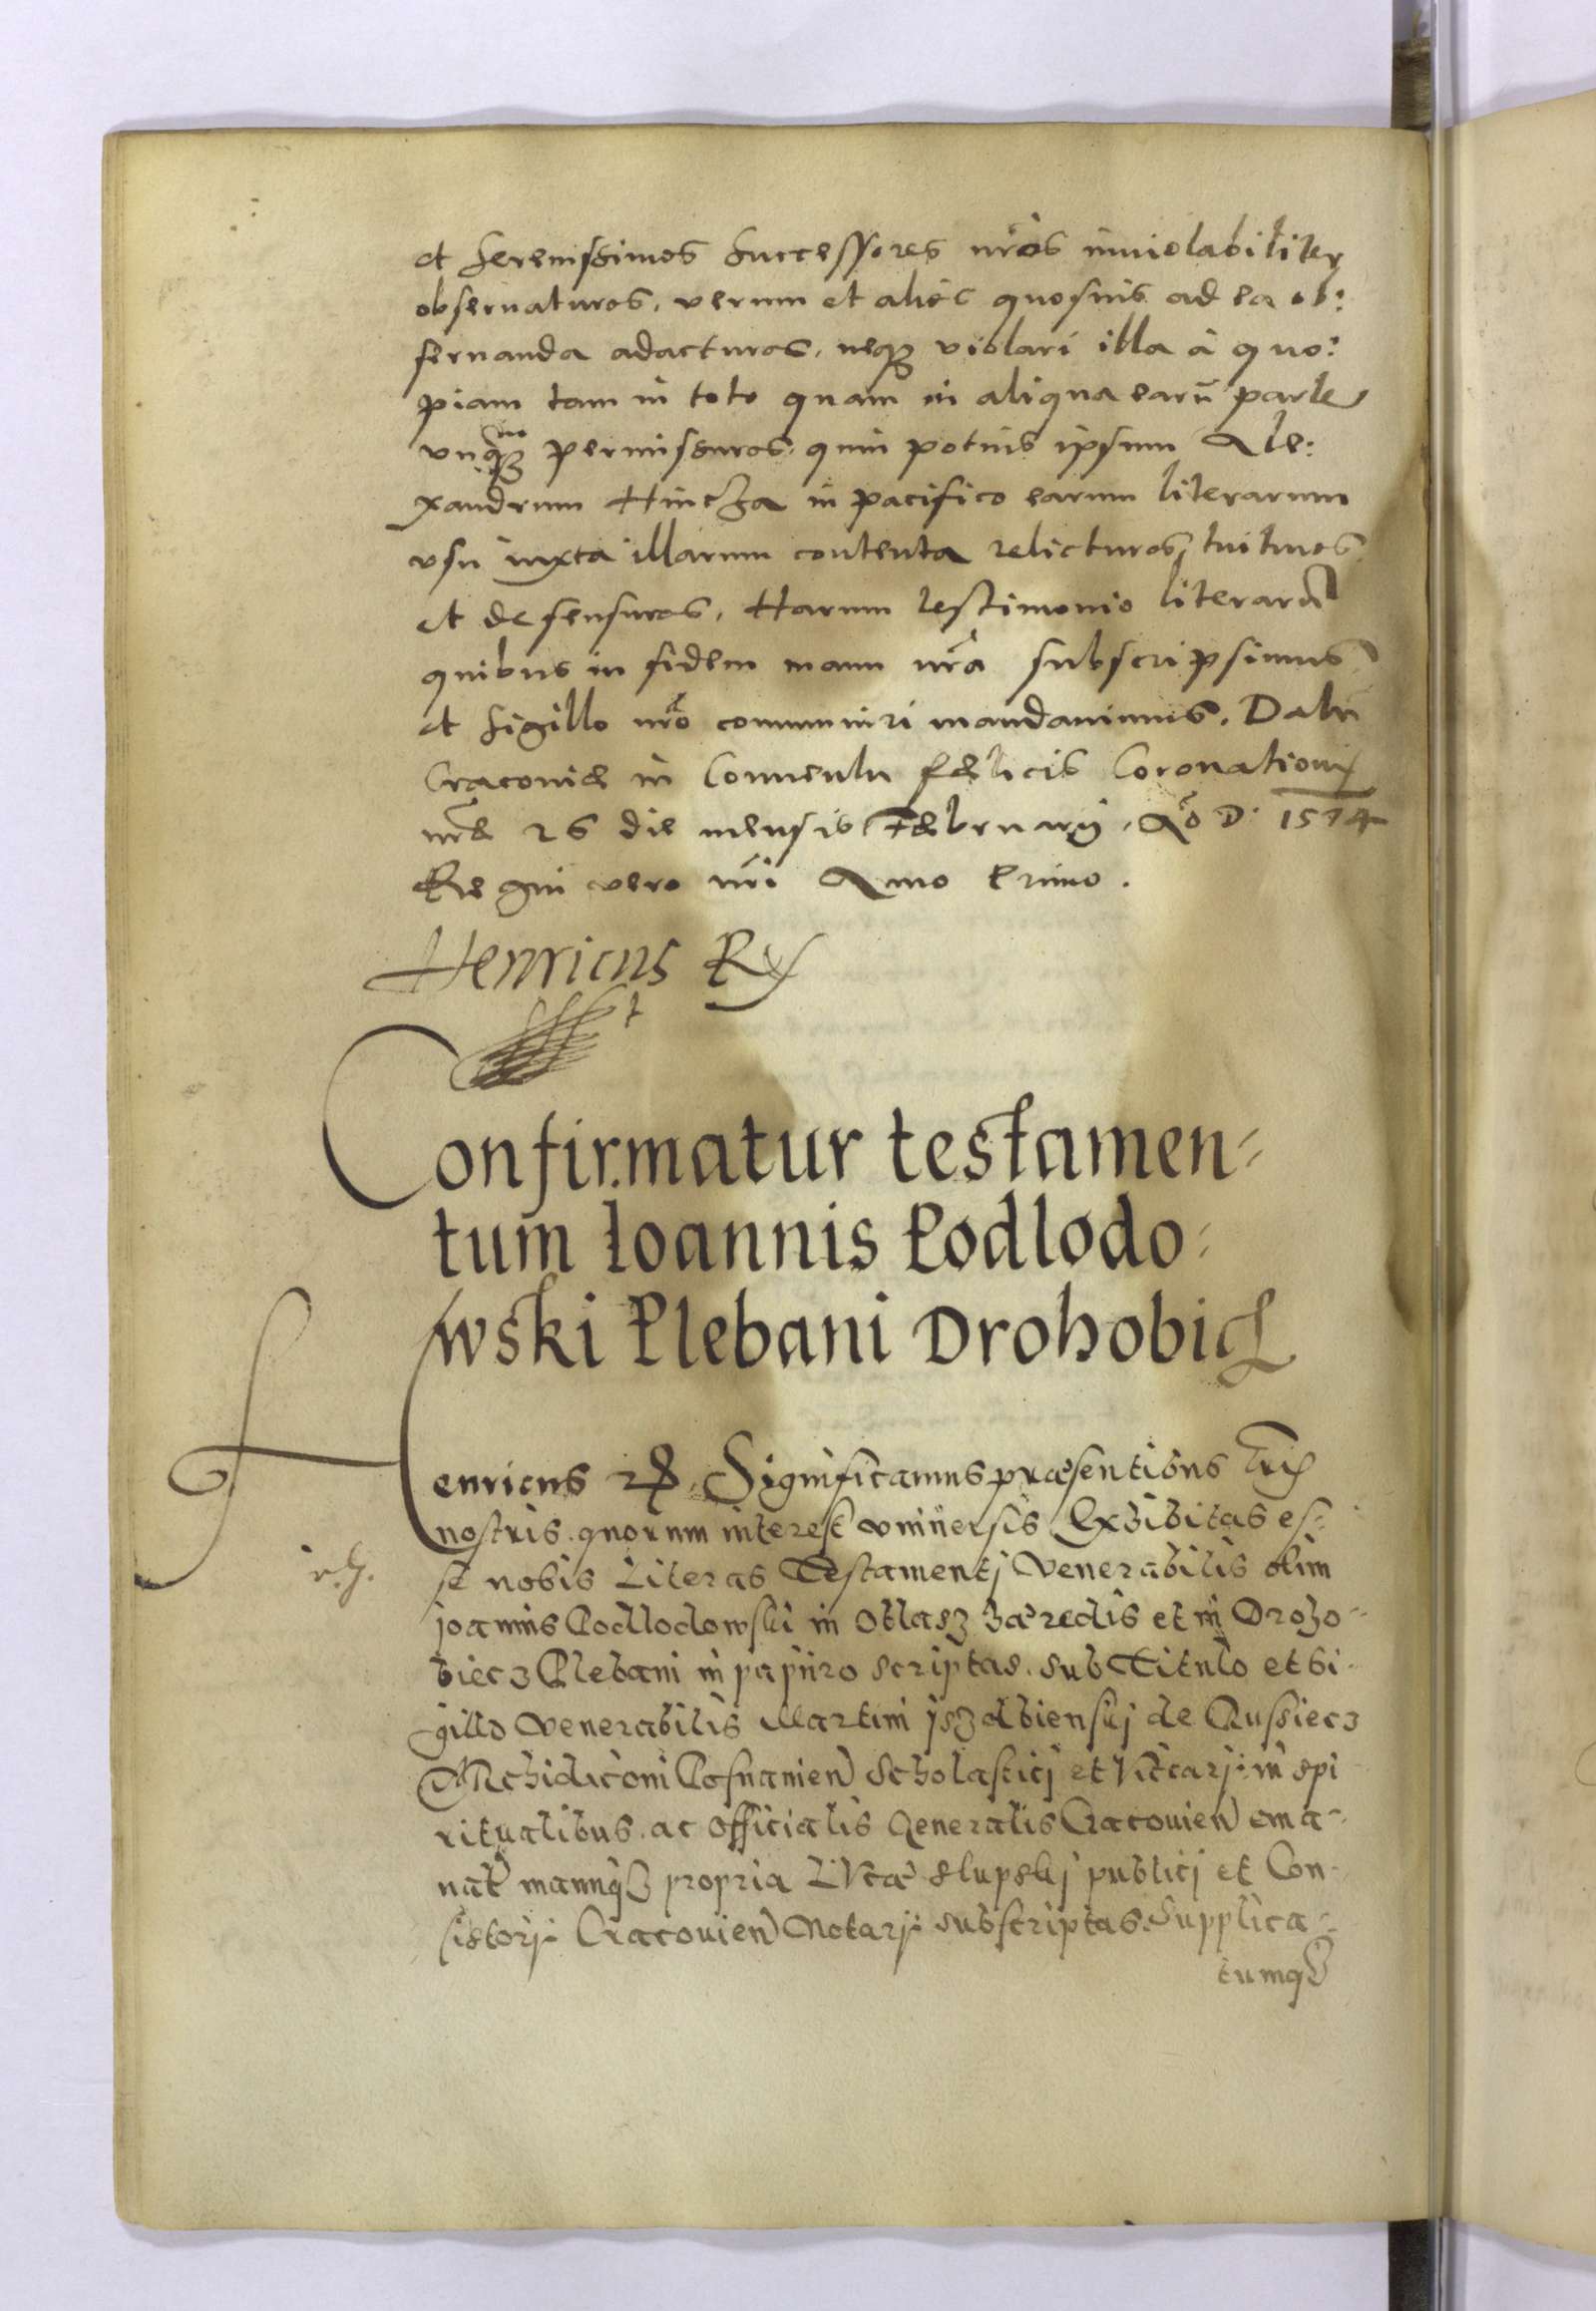 et serenissimos successores nros inuiolabiliter
obseruaturos, verum et alios quosuis ad ea ob:
seruanda adacturos, neqz violari illa à quo:
piam tam in toto quam in aliqua earū parte
vnqz permissuros, quin potius ipsum Ale:
xandrum Hincza in pacifico earum literarum
vsu iuxta illarum contenta relicturos, tuituros
et defensuros, Harum testimonio literarū
quibus in fidem manu nra subscripsimus
et sigillo nro communiri mandauimus. Datū
Cracouiæ in Conuentu fælicis Coronationis
nræ 26 die mensis Februarij, Aō D. 1574
Regni vero nri Anno Primo.
Henricus Rex
Confirmatur testamen-
tum Ioannis Podlodo-
wski Plebani Drohobicz
Henricus Significamus præsentibus
nostris quorum interest vniuersis Exhibitas es-
se nobis Literas Testamentj Venerabilis olim
joannis Podlodowski in hæredis et in Droho-
biecz Plebani in papiiro scriptas sub Titulo et Si-
gillo Venerabilis Martini jszdbienskj de Russiecz
Archidiaconi Posnanien Scholasticj et Vicarij in spi
ritualibus ac Officialis Generalis Cracouien ema-
nat manuqz propria Lucæ Slupskj publicj et Con-
sistorij Cracouien Notarij subscriptas. Supplica-
tumqz